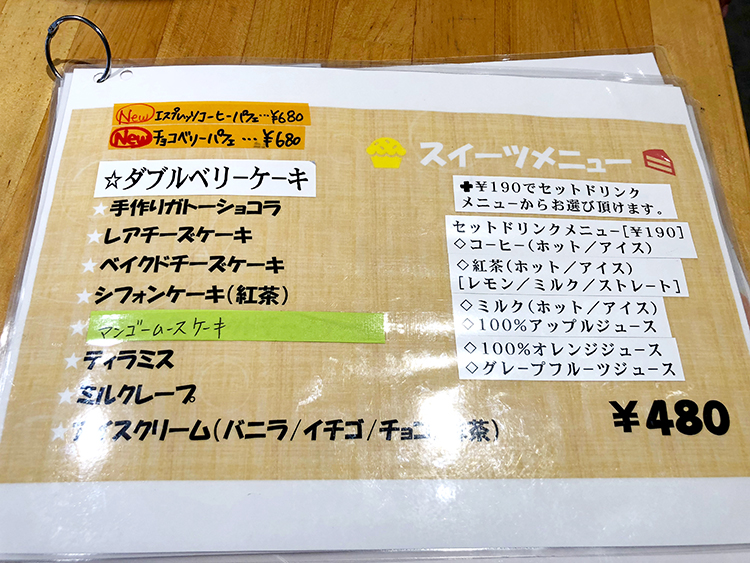 New エスプレッソコーヒーパフェ…¥680
New チョコベリーパフェ…¥680
スイーツメニュー
☆ダブルベリーケーキ
★手作りガトーショコラ
★レアチーズケーキ
★ベイクドチーズケーキ
★シフォンケーキ(紅茶)
★マンゴームースケーキ
★ティラミス
★ミルクレープ
アイスクリーム(バニラ/イチゴ/チョコ 茶)
✚¥190でセットドリンク
メニューからお選び頂けます。
セットドリンクメニュー[¥190]
◇コーヒー(ホット/アイス)
◇紅茶(ホット/アイス)
[レモン/ミルク/ストレート]
◇ミルク(ホット/アイス)
◇100%アップルジュース
◇100%オレンジジュース
◇グレープフルーツジュース
¥480